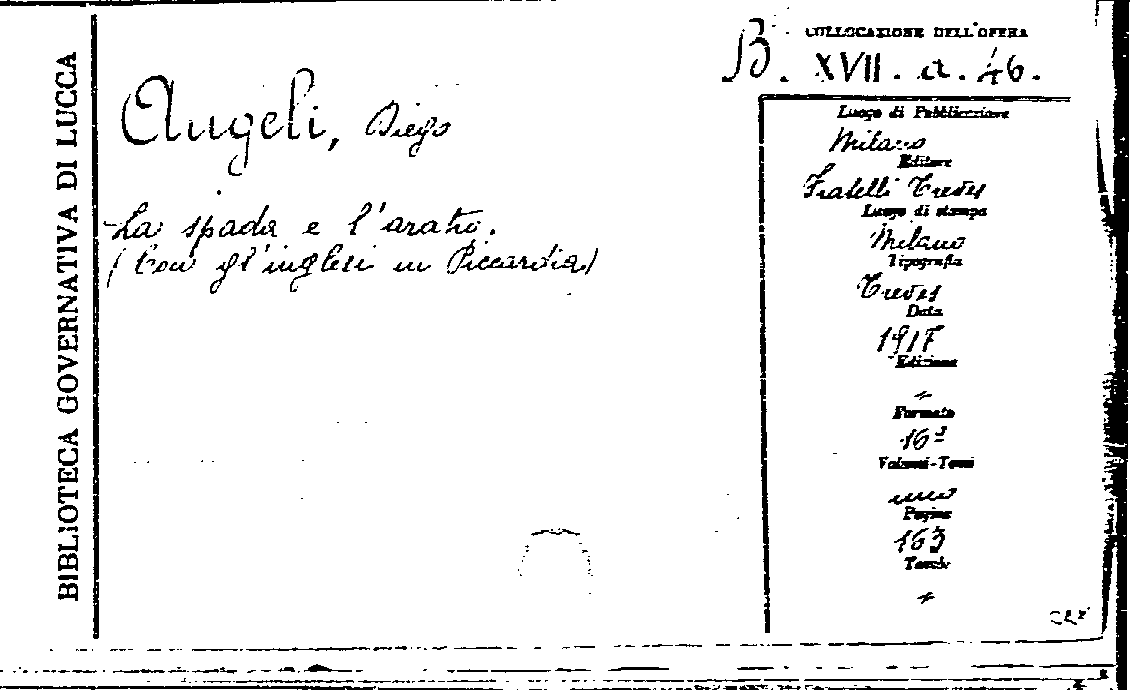 BIBLIOTECA GOVERNATIVA DI LUCCA
Angeli, Diego
La spada e l'aratro.
(Con gl'inglesi in Piccardia)
COLLOCAZIONE DELL'OPERA
B. XVII. a. 46.
Luogo di Pubblicazione
Milano
Editore
Fratelli Treves
Luogo di stampa
Milano
Tipografia
Treves
Data
1917
Edizione
Formato
16º
Volumi-Tomi
uno
Pagine
163
Tavole